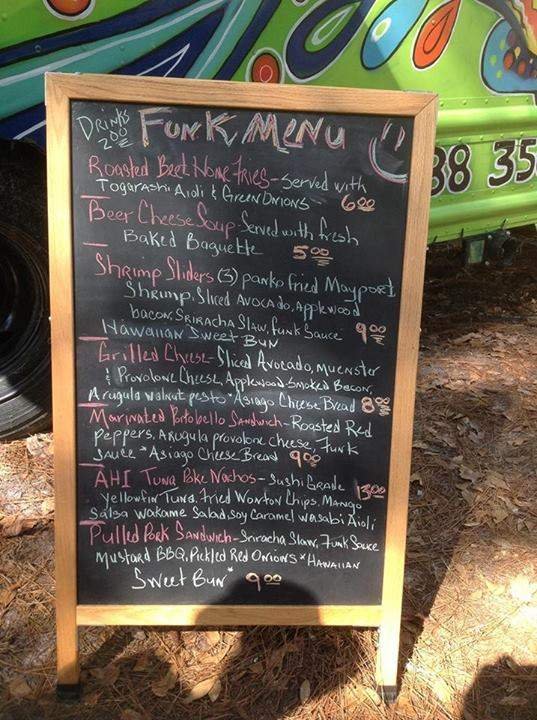 DRINKS
2.00
FUNK MENU
Roasted Beet Nome Fries - Served with
Togarashi Aioli & Green Onions 6.00
Beer Cheese Soup - Served with fresh
Baked Baguette 5.00
Shrimp Sliders (3) panko fried Mayport
Shrimp, Sliced Avocado, Applewood
bacon, Sriracha Slaw, Funk Sauce
Hawaiian Sweet Bun 9.00
Grilled Cheese - Sliced Avocado, Muenster
& Provolone Cheese, Applewood Smoked Bacon,
Arugula walnut pesto * Asiago Cheese Bread 8.00
Marinated Portobello Sandwich - Roasted Red
Peppers, Arugula provolone cheese, Funk
Sauce * Asiago Cheese Bread 9.00
AHI Tuna Poke Nachos - Sushi Grade 13.00
Yellowfin Tuna, Fried Wonton Chips, Mango
Salsa Wakame Salad, Soy Caramel Wasabi Aioli
Pulled Pork Sandwich - Sriracha Slaw, Funk Sauce
Mustard BBQ, Pickled Red Onions * Hawaiian
Sweet Bun * 9.00
38 35